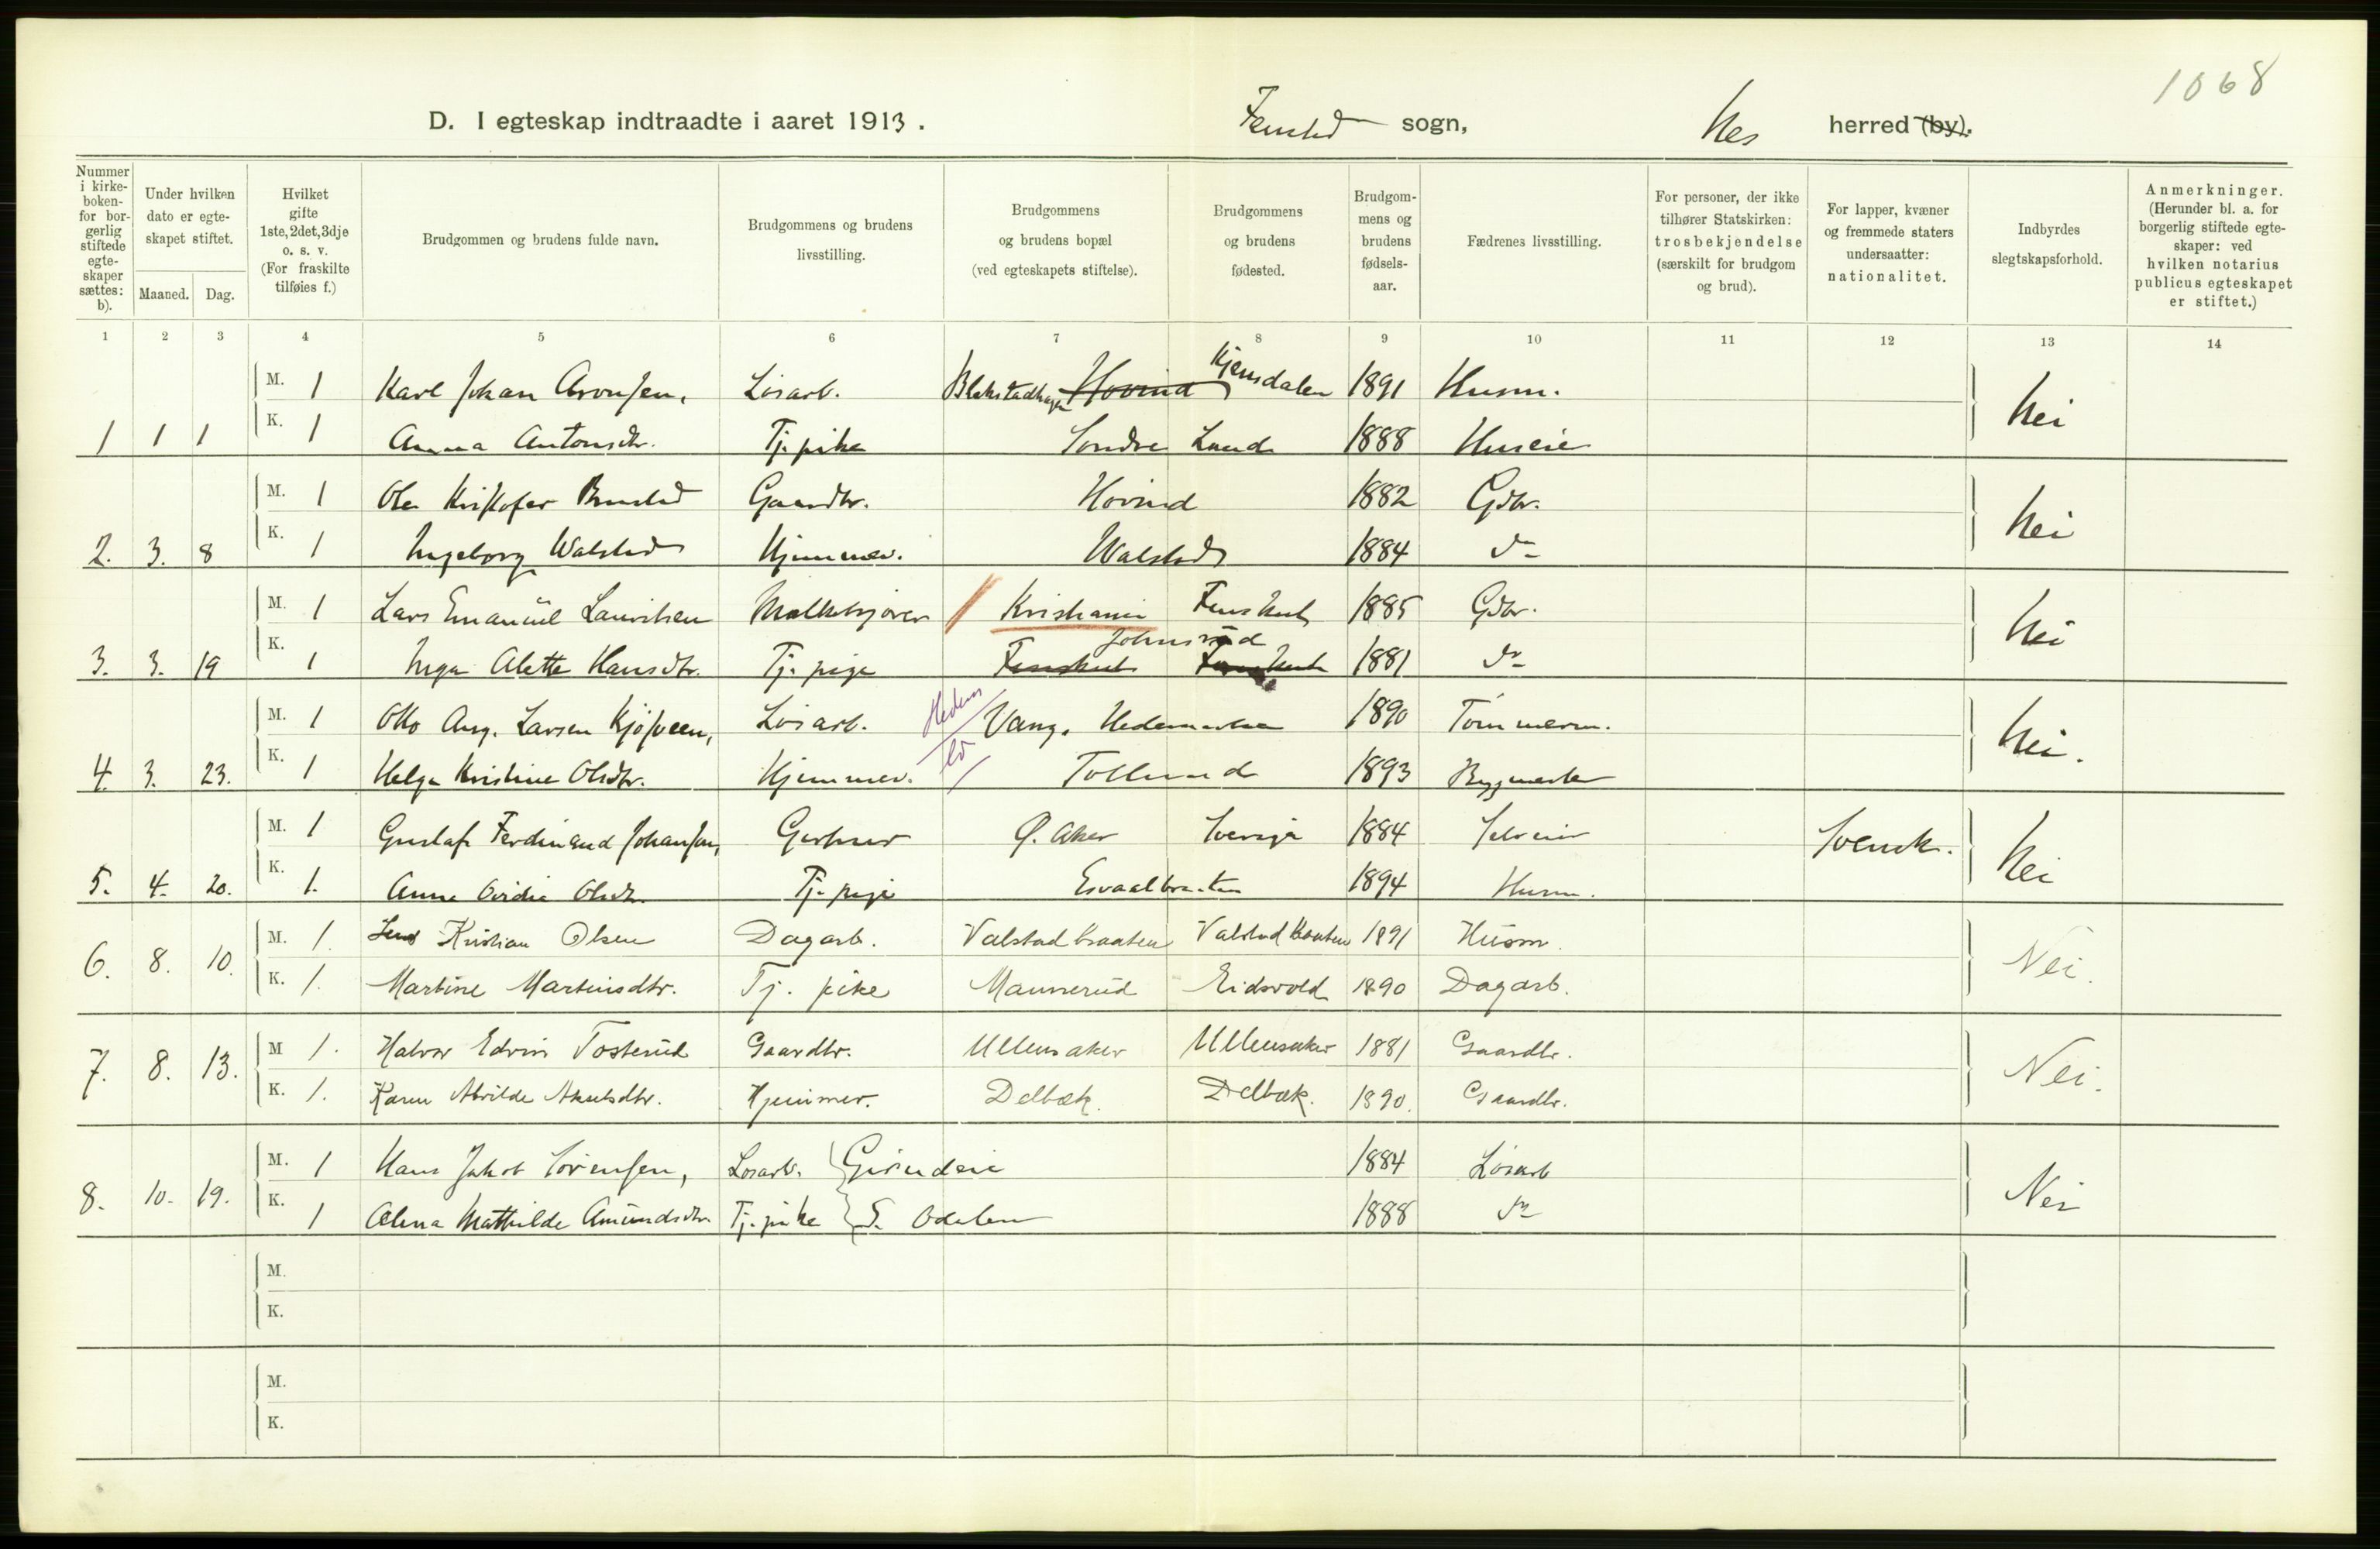 1068
D. I egteskap indtraadte i aaret 1913. Fenstad sogn, Nes herred (by).
Nummer i kirke-boken- for bor-gerlig stiftede egte-skaper sættes: b).
Under hvilken dato er egte-skapet stiftet.
Maaned. Dag.
Hvilket gifte 1ste, 2det, 3dje o. s. v. (For fraskilte tilføies f.)
Brudgommen og brudens fulde navn.
Brudgommens og brudens livsstilling.
Brudgommens og brudens bopæl (ved egteskapets stiftelse).
Brudgommens og brudens fødested.
Brudgom-mens og brudens fødsels-aar.
Fædrenes livsstilling.
For personer, der ikke tilhører Statskirken: trosbekjendelse (særskilt for brudgom og brud).
For lapper, kvæner og fremmede staters undersaatter: nationalitet.
Indbyrdes slegtskapsforhold.
Anmerkninger. (Herunder bl. a. for borgerlig stiftede egte-skaper: ved hvilken notarius publicus egteskapet er stiftet.)
1 2 3 4 5 6 7 8 9 10 11 12 13 14
M. 1 Karl Johan Aronsen, Løsarb. Blekstadhagen Hovind Kjensdalen 1891 Husm.
1 1 1 K. 1 Anna Antonsdtr. Tj. pike Søndre Lund 1888 Huseie Nei
M. 1 Ole Kristofer Gaardbr. Hovind 1882 Gdbr.
2. 3. 8 K. 1 Ingeborg Walstad Hjemmev. Walstad 1884 do Nei
M. 1 Lars Emanuel Lauritsen Melkekjører Kristiania Fenstad 1885 Gdbr.
Johnsrud
3. 3. 19 K. 1 Inga Alette Hansdtr. Tj. pige Fenstad Fenstad 1881 do Nei
M. 1 Otto Aug. Larsen Løsarb. Hedem Vang. Hedemarken 1890 Tømmerm.
4. 3. 23. K. 1 Helga Kristine Olsdtr. Hjemmev. Tollerud 1893 Bygmester Nei.
M. 1 Gustaf Ferdinand Johansson, Gartner Ø. Aker Sverige 1884 Selveier Svensk.
5. 4. 20. K. 1. Anna Ovidia Olsdtr. Tj. pige Esvaalbraaten 1894 Husm. Nei
6. 8. 10. M. 1. Kristian Olsen Dagarb. Valstadbraaten Valstadbraaten 1891 Husm.
K. 1. Martine Martinsdtr. Tj. pike Mannerud Eidsvold 1890 Dagarb. Nei.
7. 8. 13. M 1. Halvor Edvin Tosterud Gaardbr. Ullensaker Ullensaker 1881 Gaardbr.
K. 1. Karen Alvilde Akselsdtr. Hjemmev. Delbæk. Delbæk. 1890. Gaardbr. Nei.
M. 1 Hans Jakob Sørensen, Løsarb. Grindeie 1884 Løsarb
8. 10. 19. K. 1 Olena Mathilde Amundsdtr. Tj. pike S. Odalen 1888 do Nei
M.
K.
M.
K.